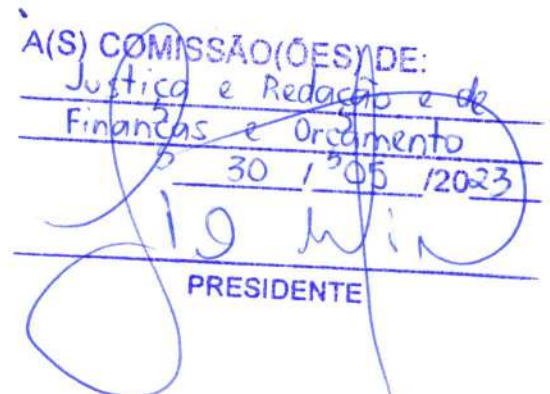 A(S) COMISSÃO(ÕES) DE:
Justiça e Redação e de
Finanças e Orçamento
30 / 05 /2023
PRESIDENTE